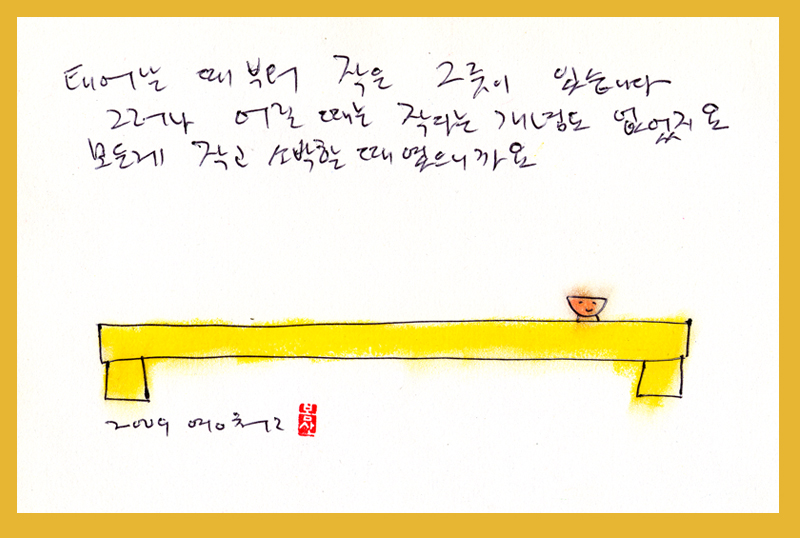 태어날 때부터 작은 그릇이 있습니다
그러나 어릴 때는 작다는 개념도 없었지요
모든게 작고 소박할 때였으니까요
2009 영희
봄산